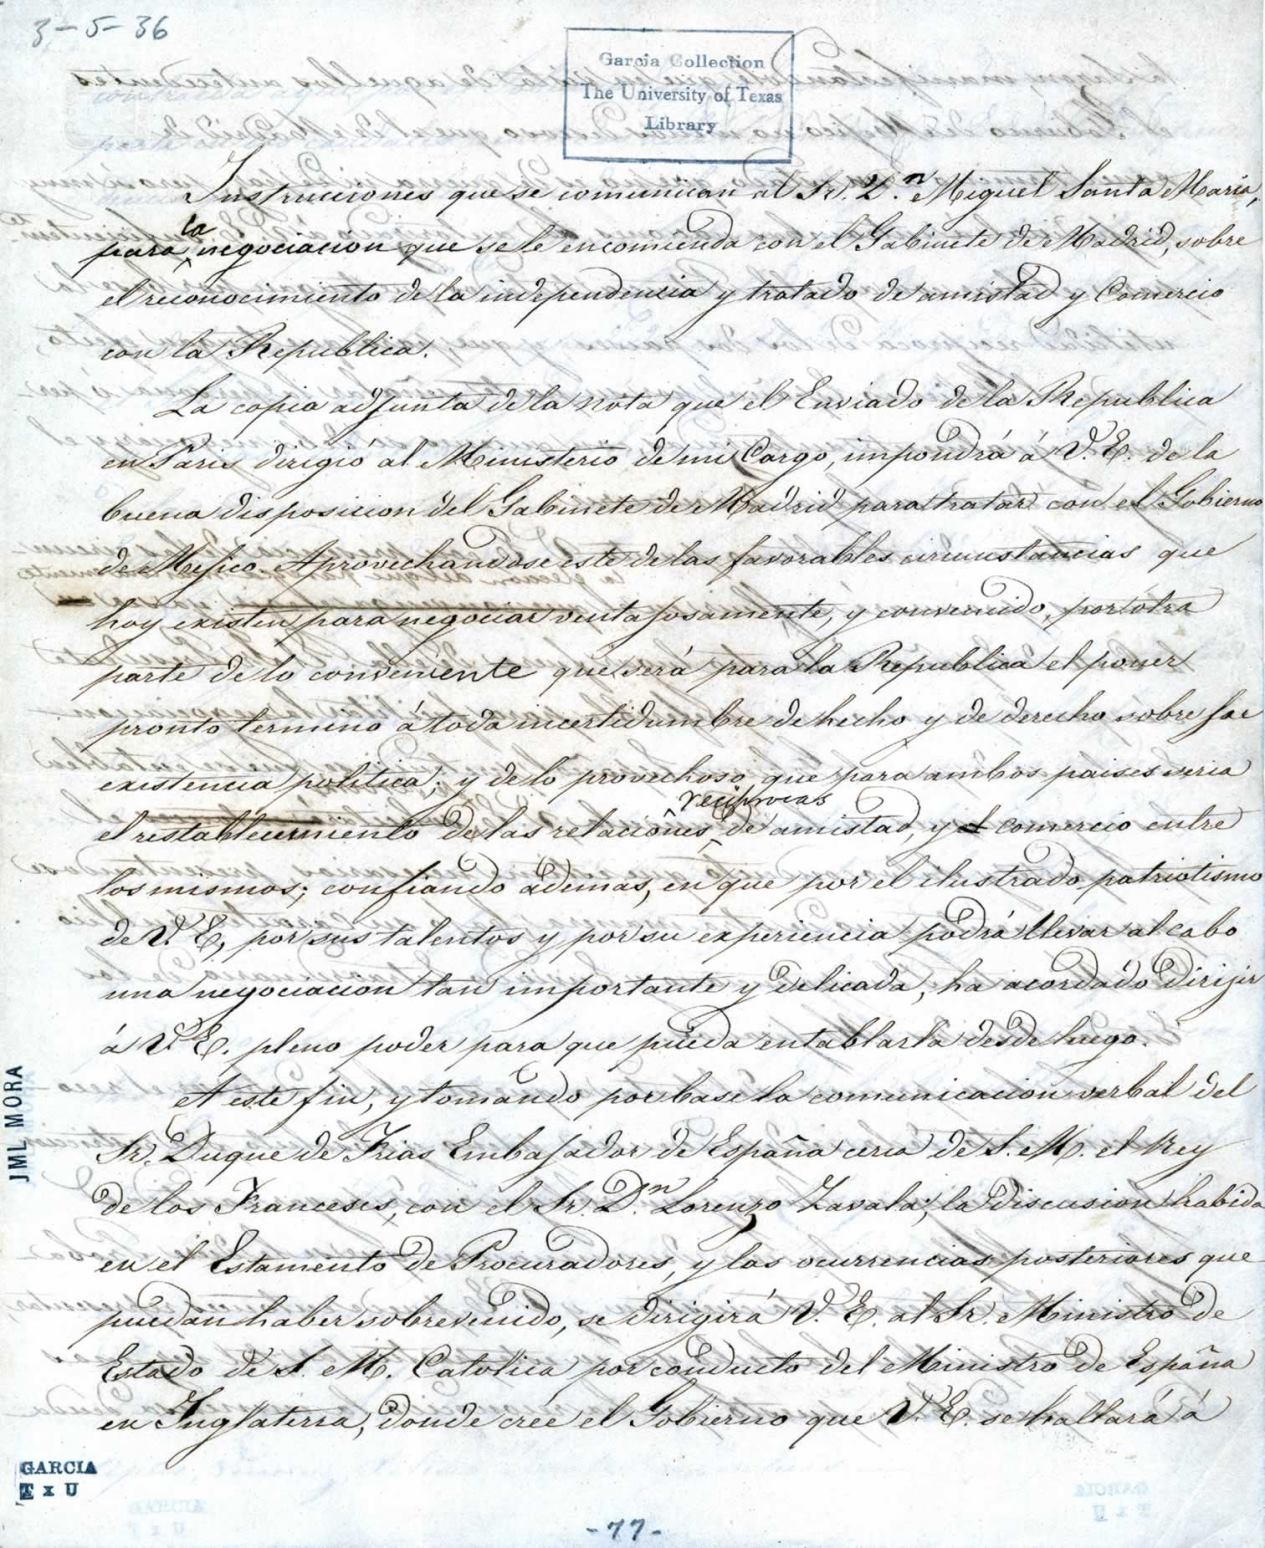 3-5-36
Garcia Collection
The University of Texas
Library
Instrucciones que se comunican al Sr. D.n Miguel Santa Maria,
para la negociacion que se le encomienda con el Gabinete de Madrid, sobre
el reconocimiento de la independencia y tratado de amistad y Comercio
con la Republica.
La copia adjunta de la nota que el Enviado de la Republica
en Paris dirigió al Ministerio de mi Cargo, impondrá á V. E. de la
buena disposicion del Gabinete de Madrid para tratar con el Gobierno
de Mejico. Aprovechandose este de las favorables circunstancias que
hoy existen para negociar ventajosamente, y convencido, por otra
parte de lo conveniente que será para la Republica el poner
pronto termino á toda incertidumbre de hecho y de derecho sobre su
existencia politica; y de lo provechoso que para ambos paises seria
el restablecimiento de las relaciones reciprocas de amistad, y comercio entre
los mismos; confiando ademas, en que por el ilustrado patriotismo
de V. E, por sus talentos y por su experiencia podrá llevar al cabo
una negociacion tan importante y delicada, ha acordado dirijir
á V. E. pleno poder para que pueda entablarla desde luego.
A este fin, y tomando por base la comunicacion verbal del
Sr. Duque de Frias Embajador de España cerca de S. M. el Rey
de los Franceses, con el Sr. D.n Lorenzo Zavala; la discusion habida
en el Estamento de Procuradores, y las ocurrencias posteriores que
puedan haber sobrevenido, se dirigirá V. E. al Sr. Ministro de
Estado de S. M. Catolica por conducto del Ministro de España
en Inglaterra, donde cree el Gobierno que V. E. se hallará á
JML MORA
GARCIA
T x U
-77-